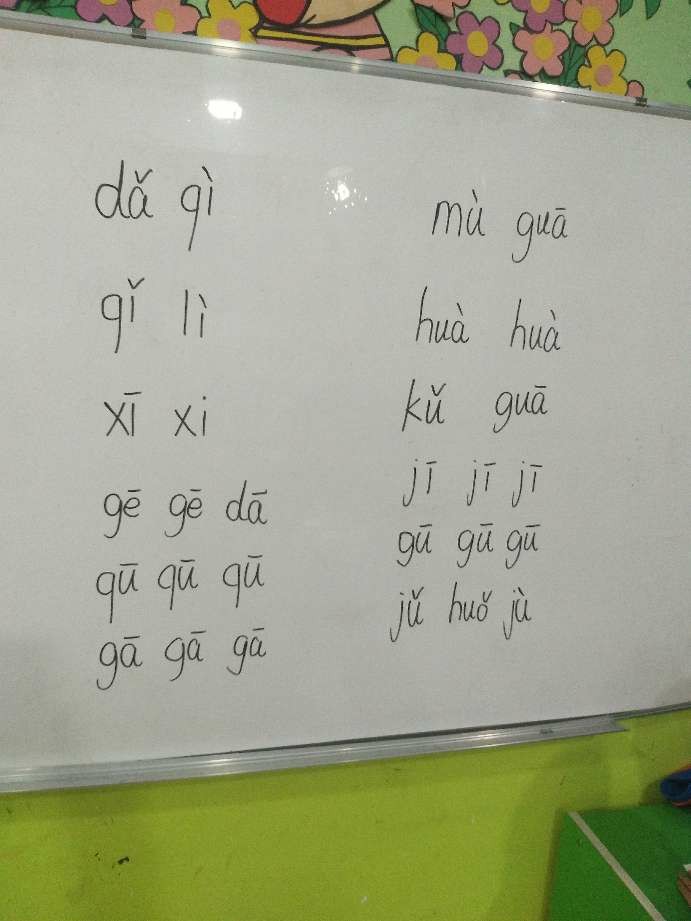 dǎ qì
qǐ lì
xī xi
gē gē dā
qū qū qū
gā gā gā
mù guā
huà huà
kǔ guā
jī jī jī
gū gū gū
jǔ huǒ jù